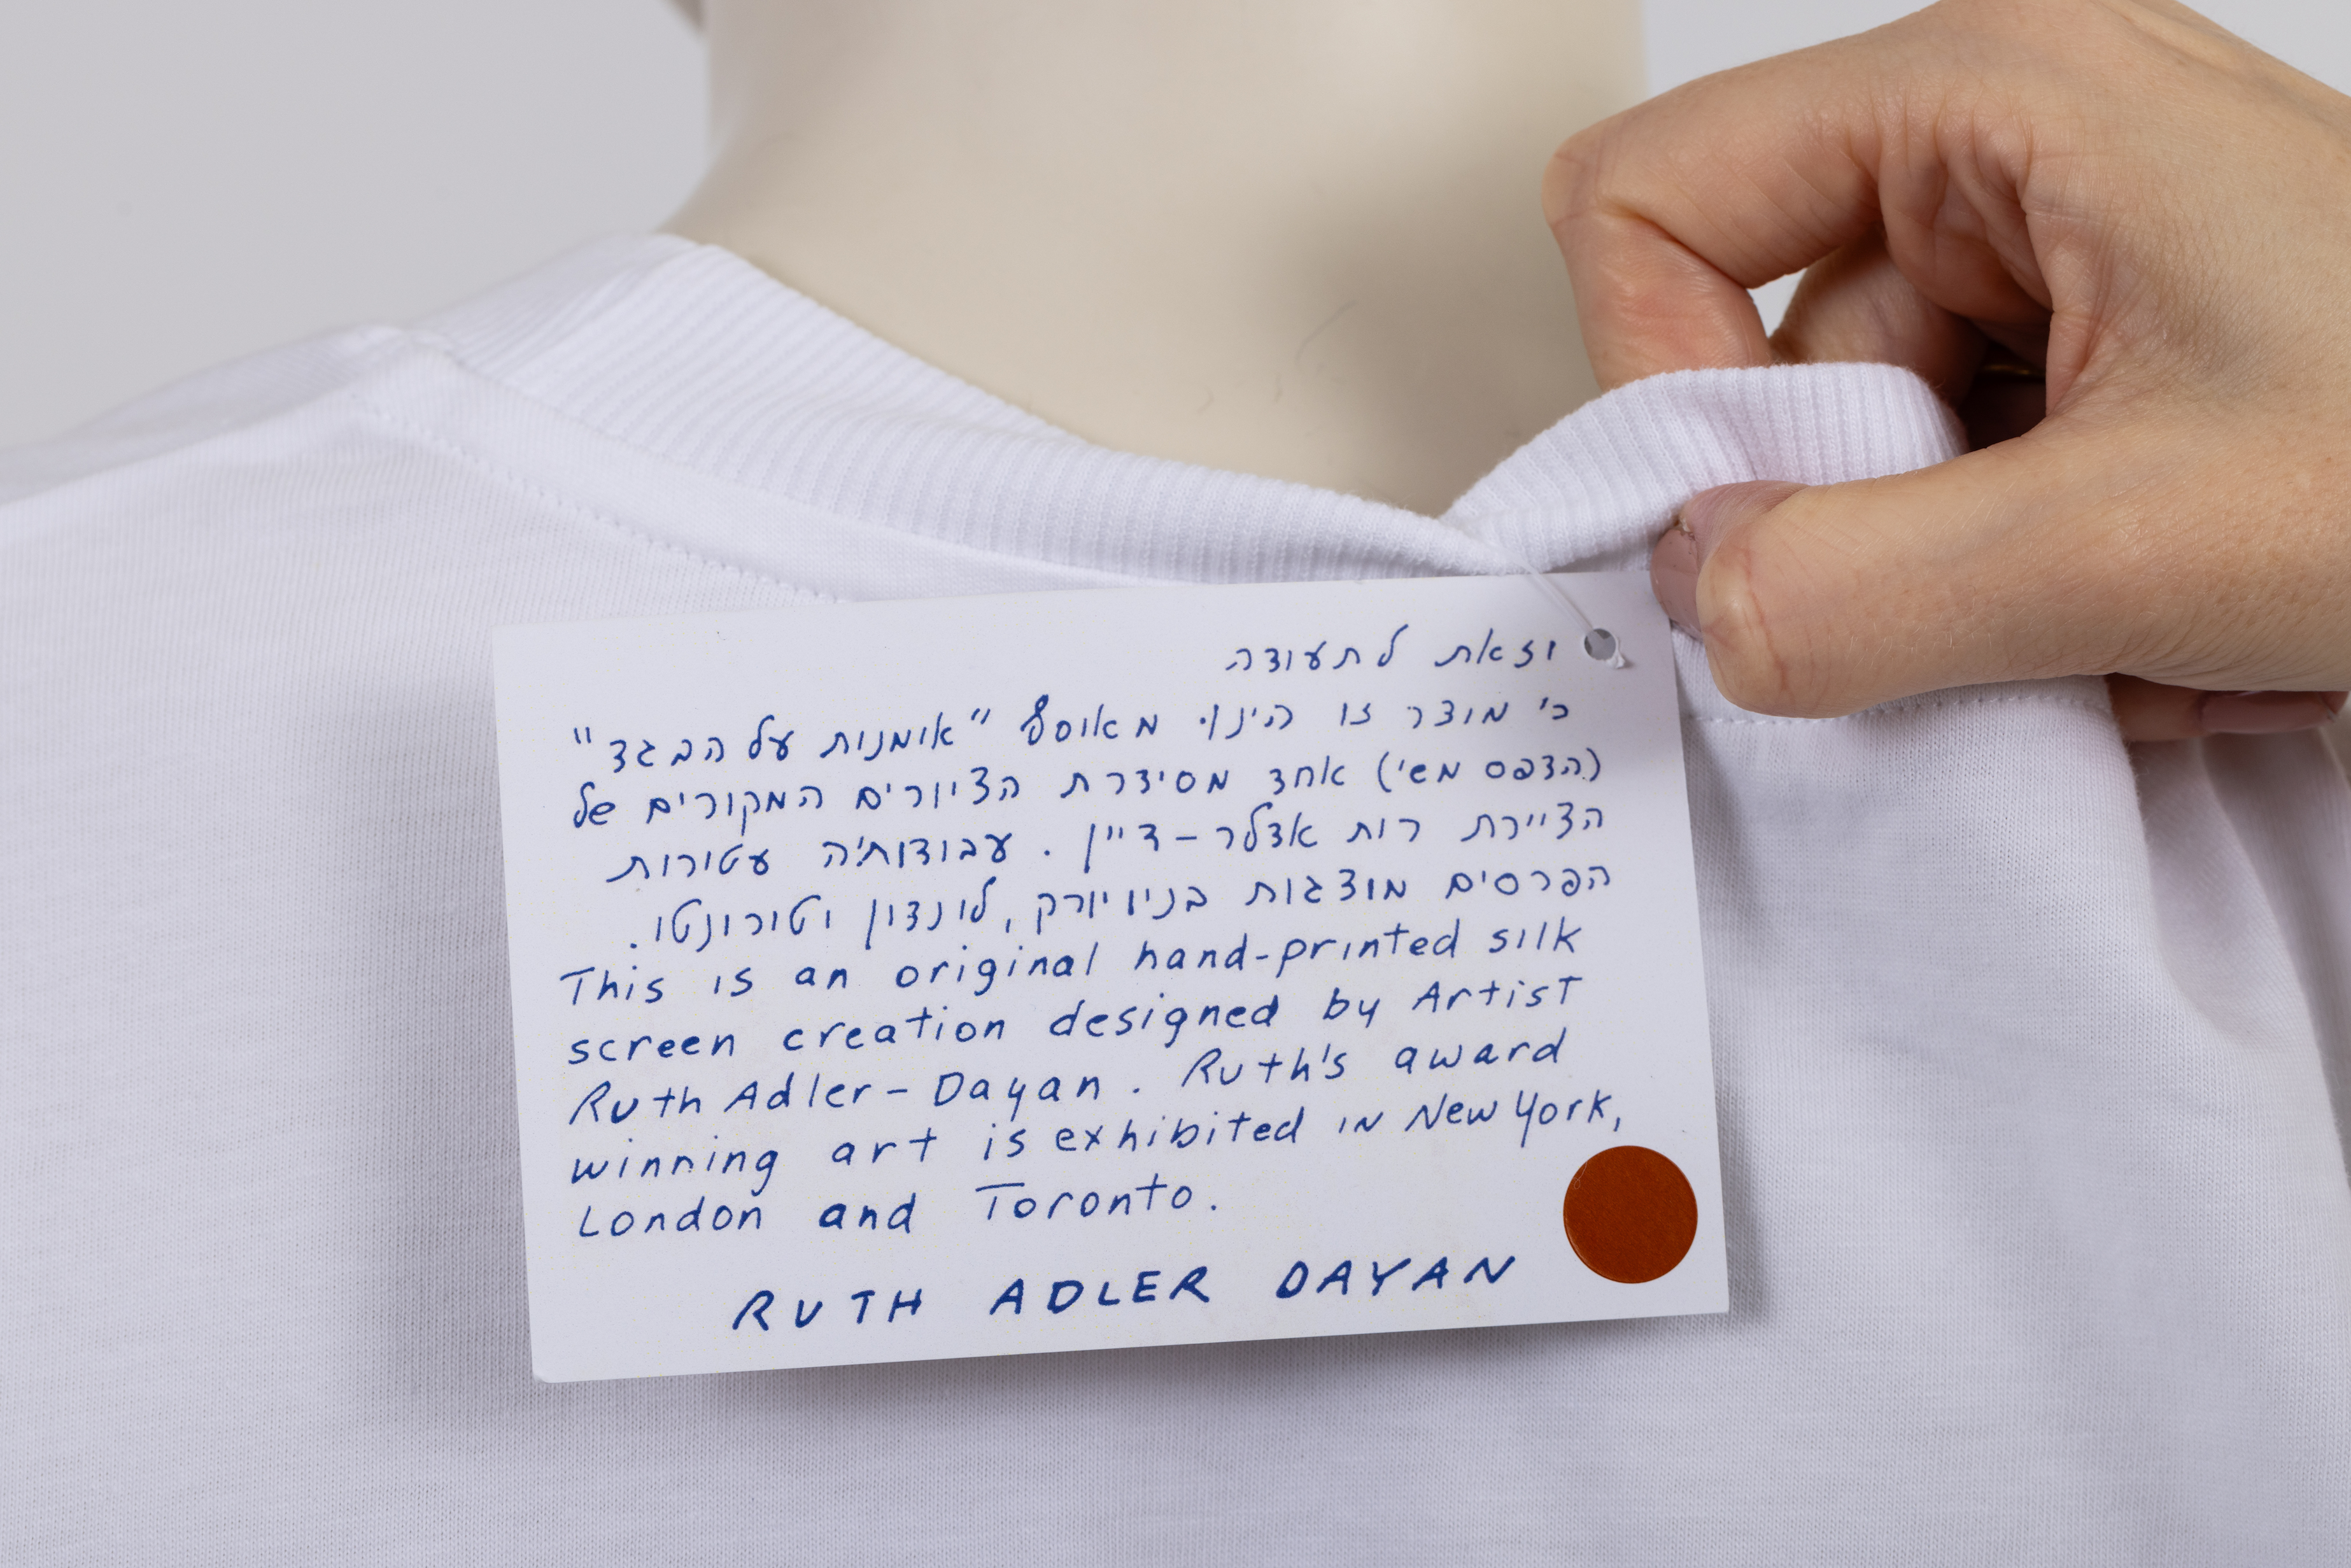 וזאת לתעודה
כי מוצר זו הינו מאוסף "אומנות על הבגד"
(הדפס משי) אחד מסידרת הציורים המקורים של
הציירת רות אדלר-דיין. עבודותיה עטורות
הפרסים מוצגות בניו יורק, לונדון וטורונטו.
This is an original hand-printed silk
screen creation designed by Artist
Ruth Adler-Dayan. Ruth's award
winning art is exhibited in New York,
London and Toronto.
RUTH ADLER DAYAN